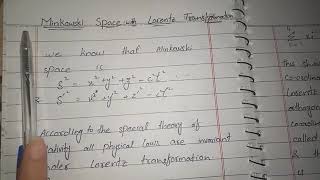 Minkowski Space with Lorentz Transformation
we know that Minkowski
space is
S² = x² + y² + y² - c²t²
S'² = x'² + y'² + z'² - c²t'²
According to the special theory of
relativity all physical laws are invariant
under Lorentz transformation.
this show
co-ordina
Lorentz